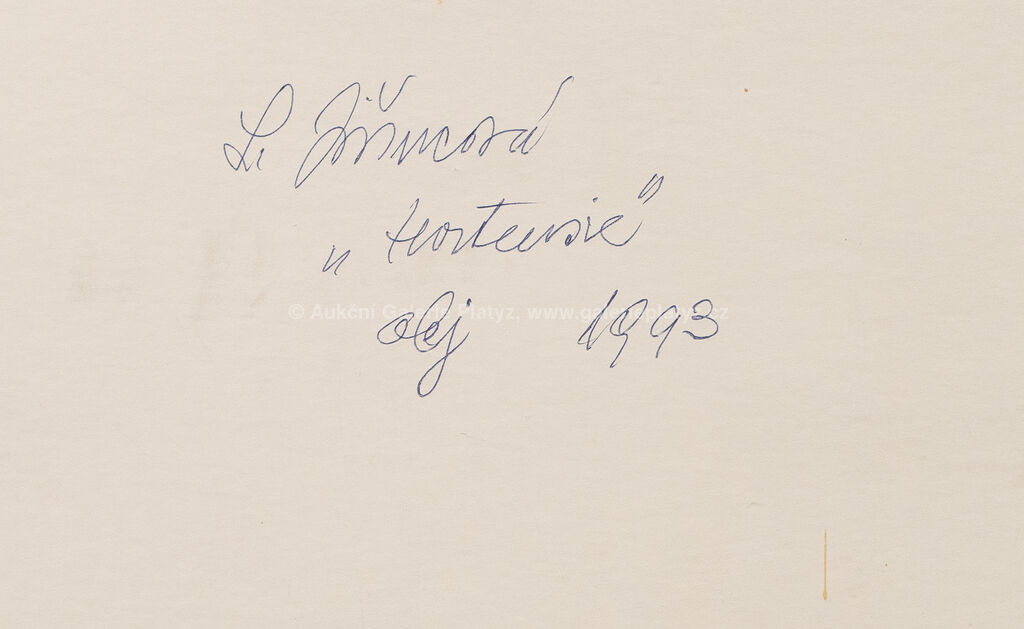 L. Jiřincová
„Hortensie"
olej 1993
© Aukční Galerie Platýz, www.galerieplatyz.cz